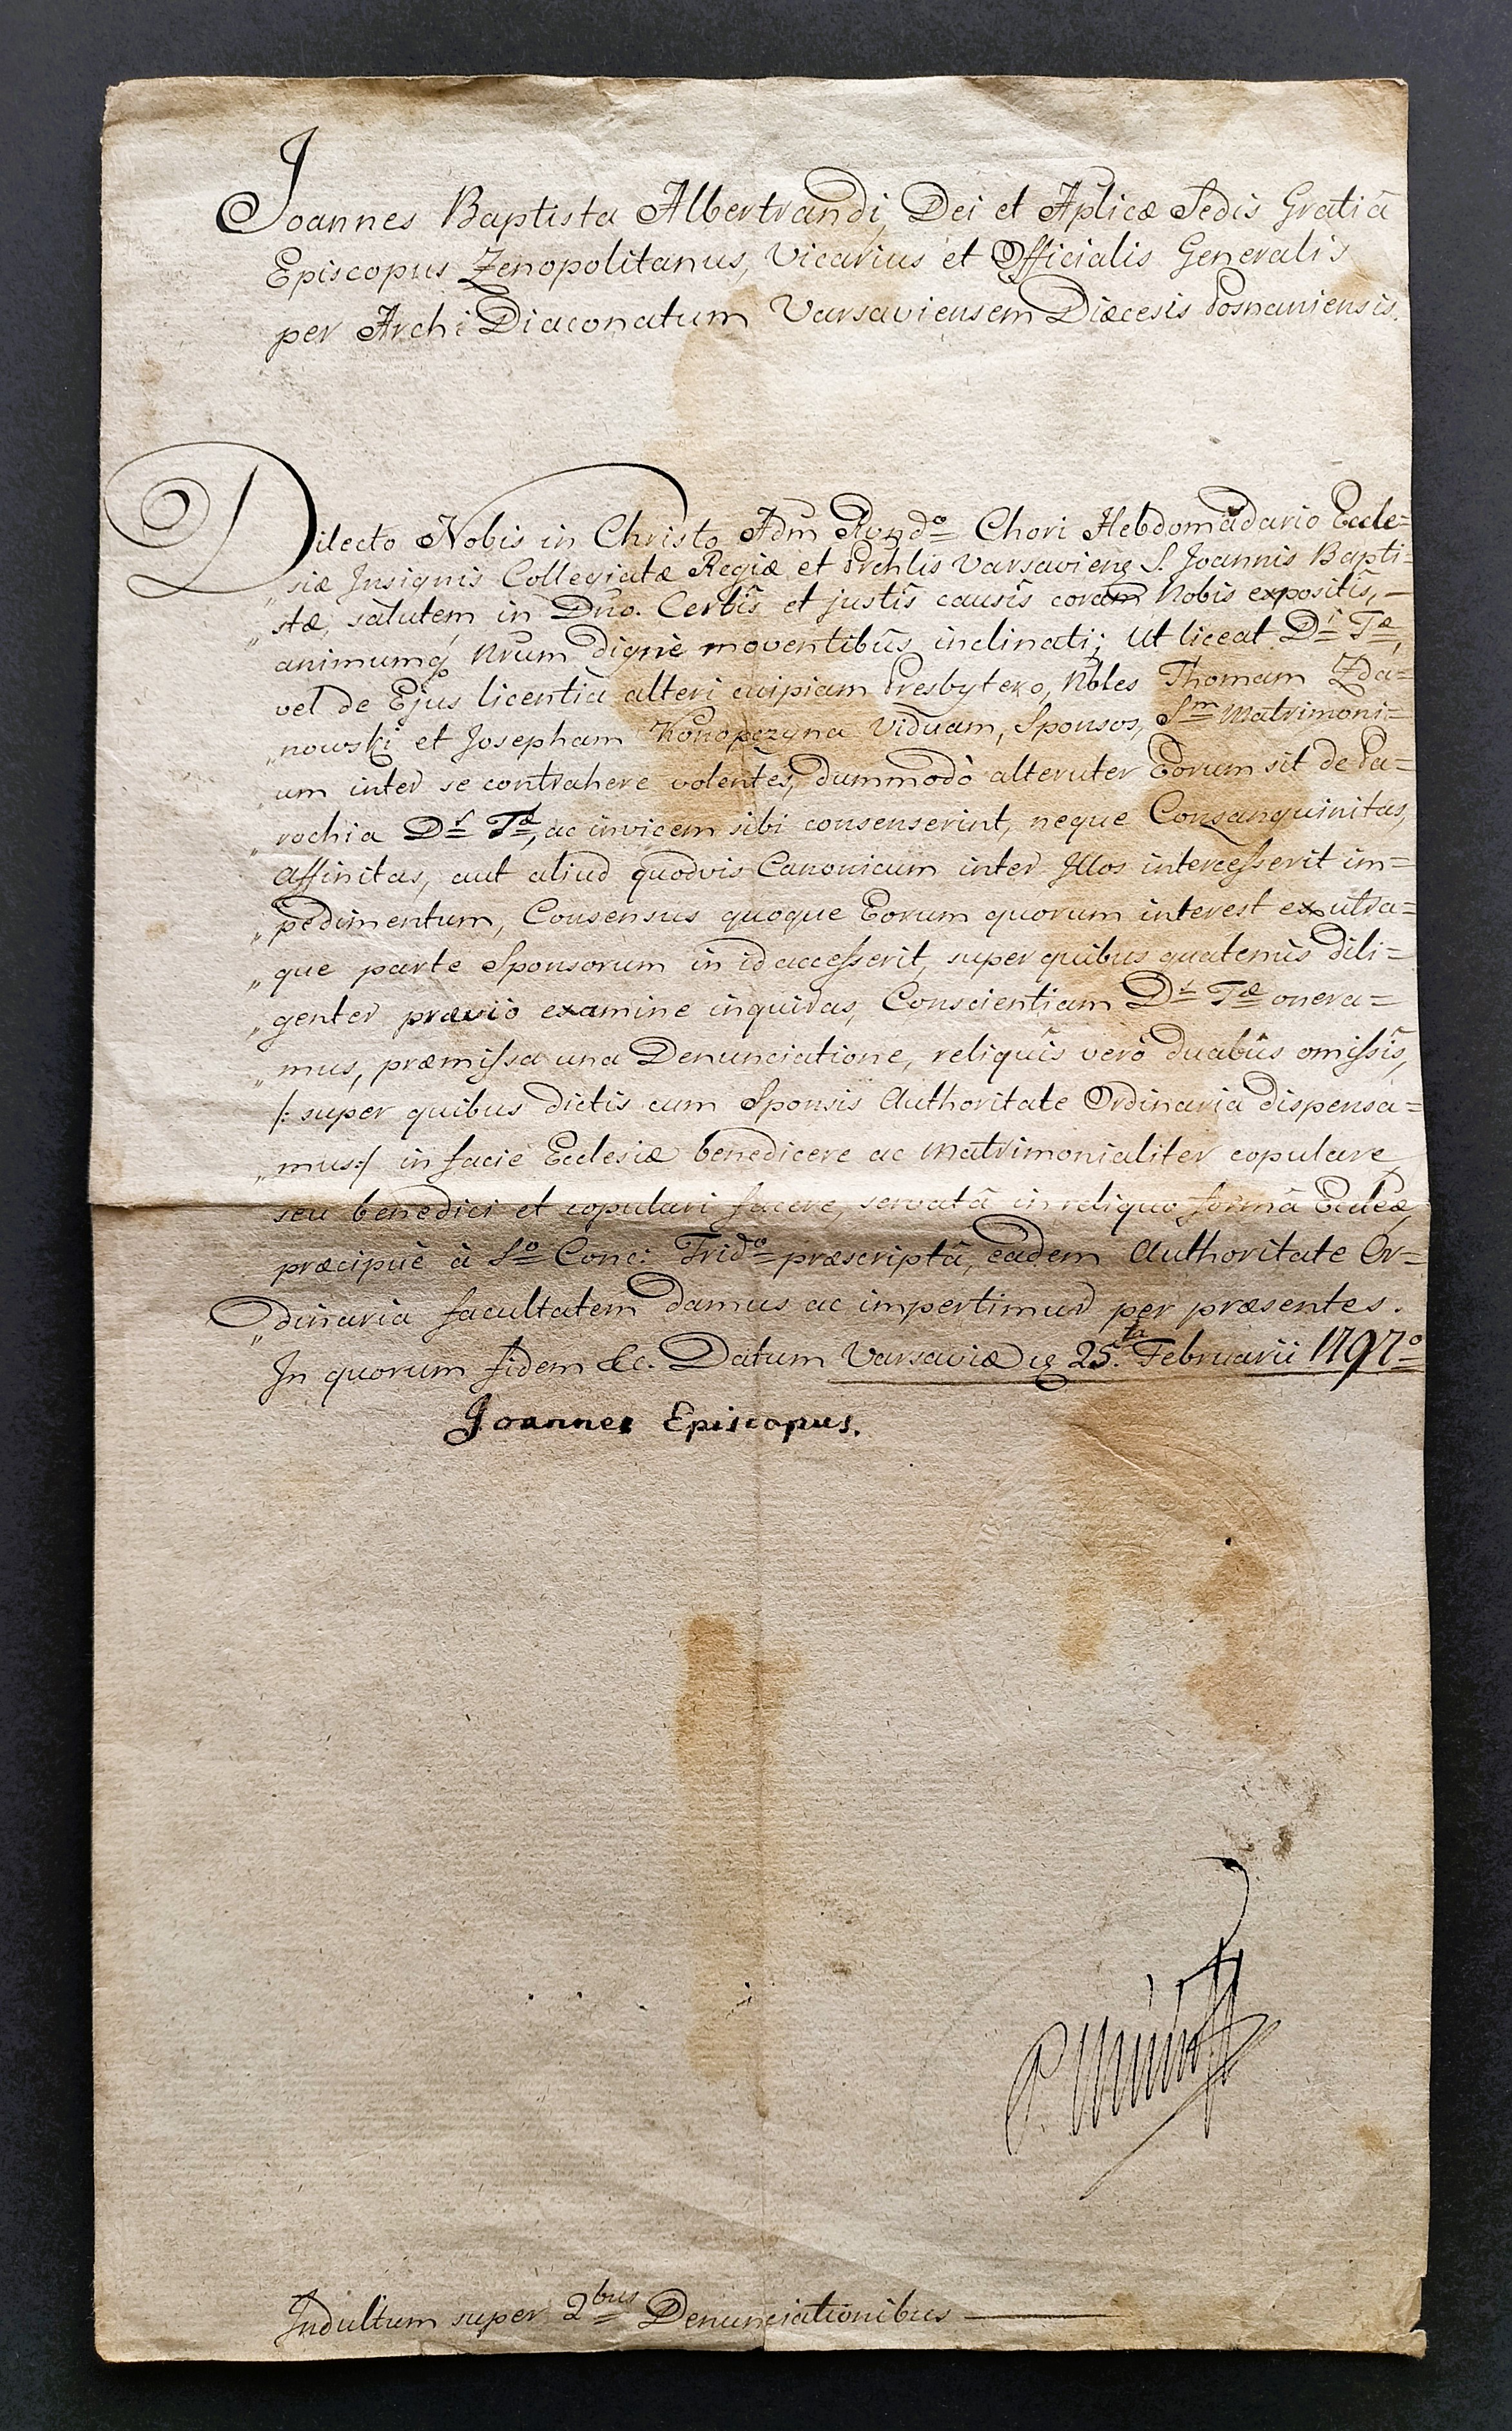 Joannes Baptista Albertrandi, Dei et Aplicæ Sedis Gratiâ
Episcopus Zenopolitanus, Vicarius et Officialis Generalis
per Archi Diaconatum Varsaviensem Diæcesis Posnaniensis.
Dilecto Nobis in Christo Adm Rvndo Chori Hebdomadario Eccle=
„siæ Insignis Collegiatæ Regiæ et Prchlis Varsavieñs S. Joannis Bapti=
„stæ, salutem in Dño. Certîs et justîs causîs coram Nobis exposîtis, –
animumq Nrum dignè moventibûs inclinati; Ut liceat Di Tæ,
vel de Ejus licentia alteri cuipiam Presbytero, Nbles Thomam Zda=
„nowski et Josepham Konopczyna Viduam, Sponsos, Sm Matrimoni=
um inter se contrahere volentes, dummodò alteruter Eorum sit de Pa=
„rochia Dis Tæ, ac invicem sibi consenserint, neque Consanguinitas,
Affinitas, aut aliud quodvis Canonicum inter Illos intercesserit im=
„pedimentum, Consensus quoque Eorum quorum interest ex utra=
„que parte Sponsorum in id accesserit, super quibus quatenùs dili=
„genter prævio examine inquiras, Conscientiam Dis Tæ onera=
„mus, præmissa una Denunciatione, reliquîs verò duabûs omissîs,
/: super quibus dictis cum Sponsis Authoritate Ordinaria dispensa=
„mus:/ in facie Ecclesiæ benedicere ac Matrimonialiter copulare
seu benedici et copulari facere, servatâ in reliquo formâ Eccleæ,
præcipuè à So Conc: Trido præscriptâ, eâdem Authoritate Or=
„dinaria facultatem damus ac impertimur per præsentes.
In quorum fidem &c. Datum Varsaviæ 25.ta Februarii 1797o
Joannes Episcopus.
Indultum super 2bus Denunciationibus